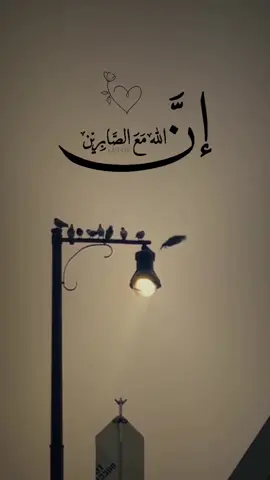 إنَّ الله مَعَ الصَّابِرِيْن